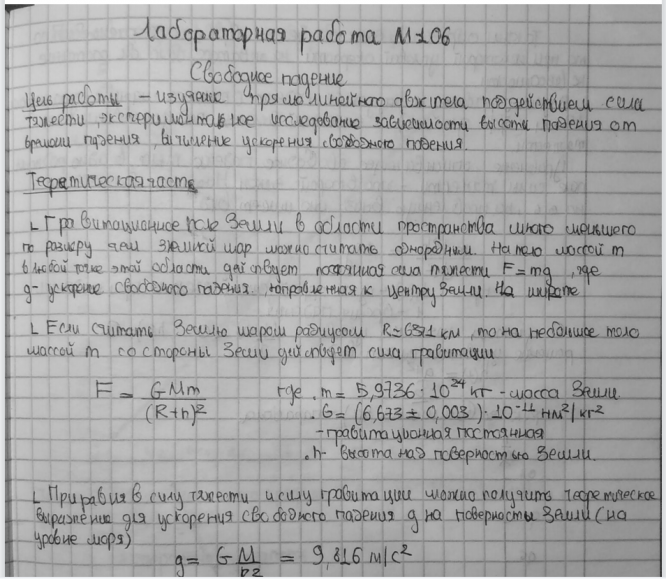 Лабораторная работа М106
Свободное падение
Цель работы – изучение прямолинейного движ тела под действием сила
тяжести экспериментальное исследование зависимости высоти падения от
времени падения, вычисление ускорения свободного падения.
Теоретическая часть
Гравитационное поле Земли в области пространства много меньшего
по размеру чем земной шар можно считать однородним. На тело массой m
в любой точке этой области действует постоянная сила тяжести F=mg, где
g- ускорение свободного падения, направленная к центру Земли. На широте
Если считать Землю шаром радиусом R≈6371 км, то на небольшое тело
массой m со стороны Земли действует сила гравитации
F = GMm/(R+h)² где . m = 5,9736·10²⁴ кг - масса Земли.
. G = (6,673 ± 0,003)·10⁻¹¹ Нм²/кг²
- гравитационная постоянная
. h- высота над поверностью Земли.
Приравняв силу тяжести и силу гравитации можно получить теоретическое
выражение для ускорения свободного падения g на поверности Земли (на
уровне моря)
g = G M/R² = 9,816 м/с²